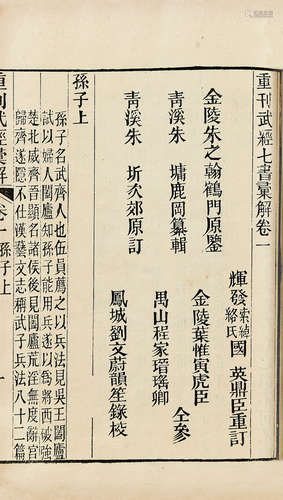 重刊武經七書彙解卷一
輝發索綽絡氏國英鼎臣重訂
金陵朱之翰鶴門原鑒
金陵葉惟寅虎臣
青溪朱墉鹿岡纂輯
禺山程家瑨瑤卿
仝參
青溪朱圻次郊原訂
鳳城劉文蔚韻笙錄校
孫子上
孫子名武齊人也伍員薦之以兵法見吳王闔廬
試以婦人闔廬知孫子能用兵遂以爲將西破強
楚北威齊晉顯名諸侯後見闔廬荒淫無度辭官
歸齊遂隱不仕漢藝文志稱武子兵法八十二篇
重刊武經彙解
卷一孫子上
一